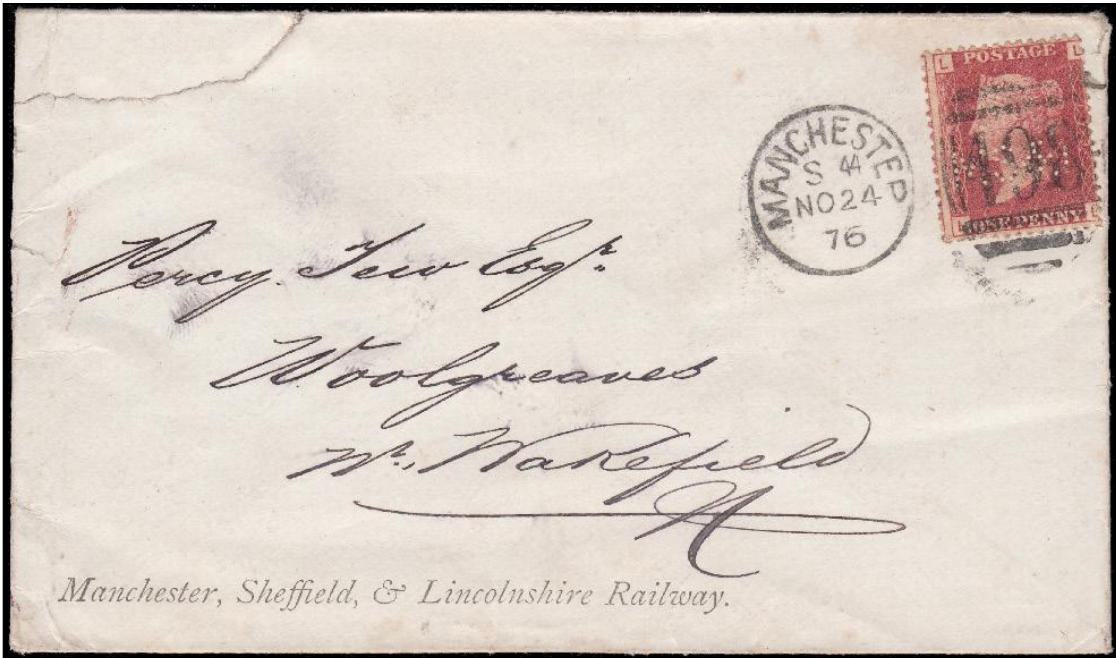 L POSTAGE L
498
L ONE PENNY L
MANCHESTER
S 44
NO 24
76
Percy Tew Esqr.
Woolgreaves
Nr. Wakefield
Manchester, Sheffield, & Lincolnshire Railway.